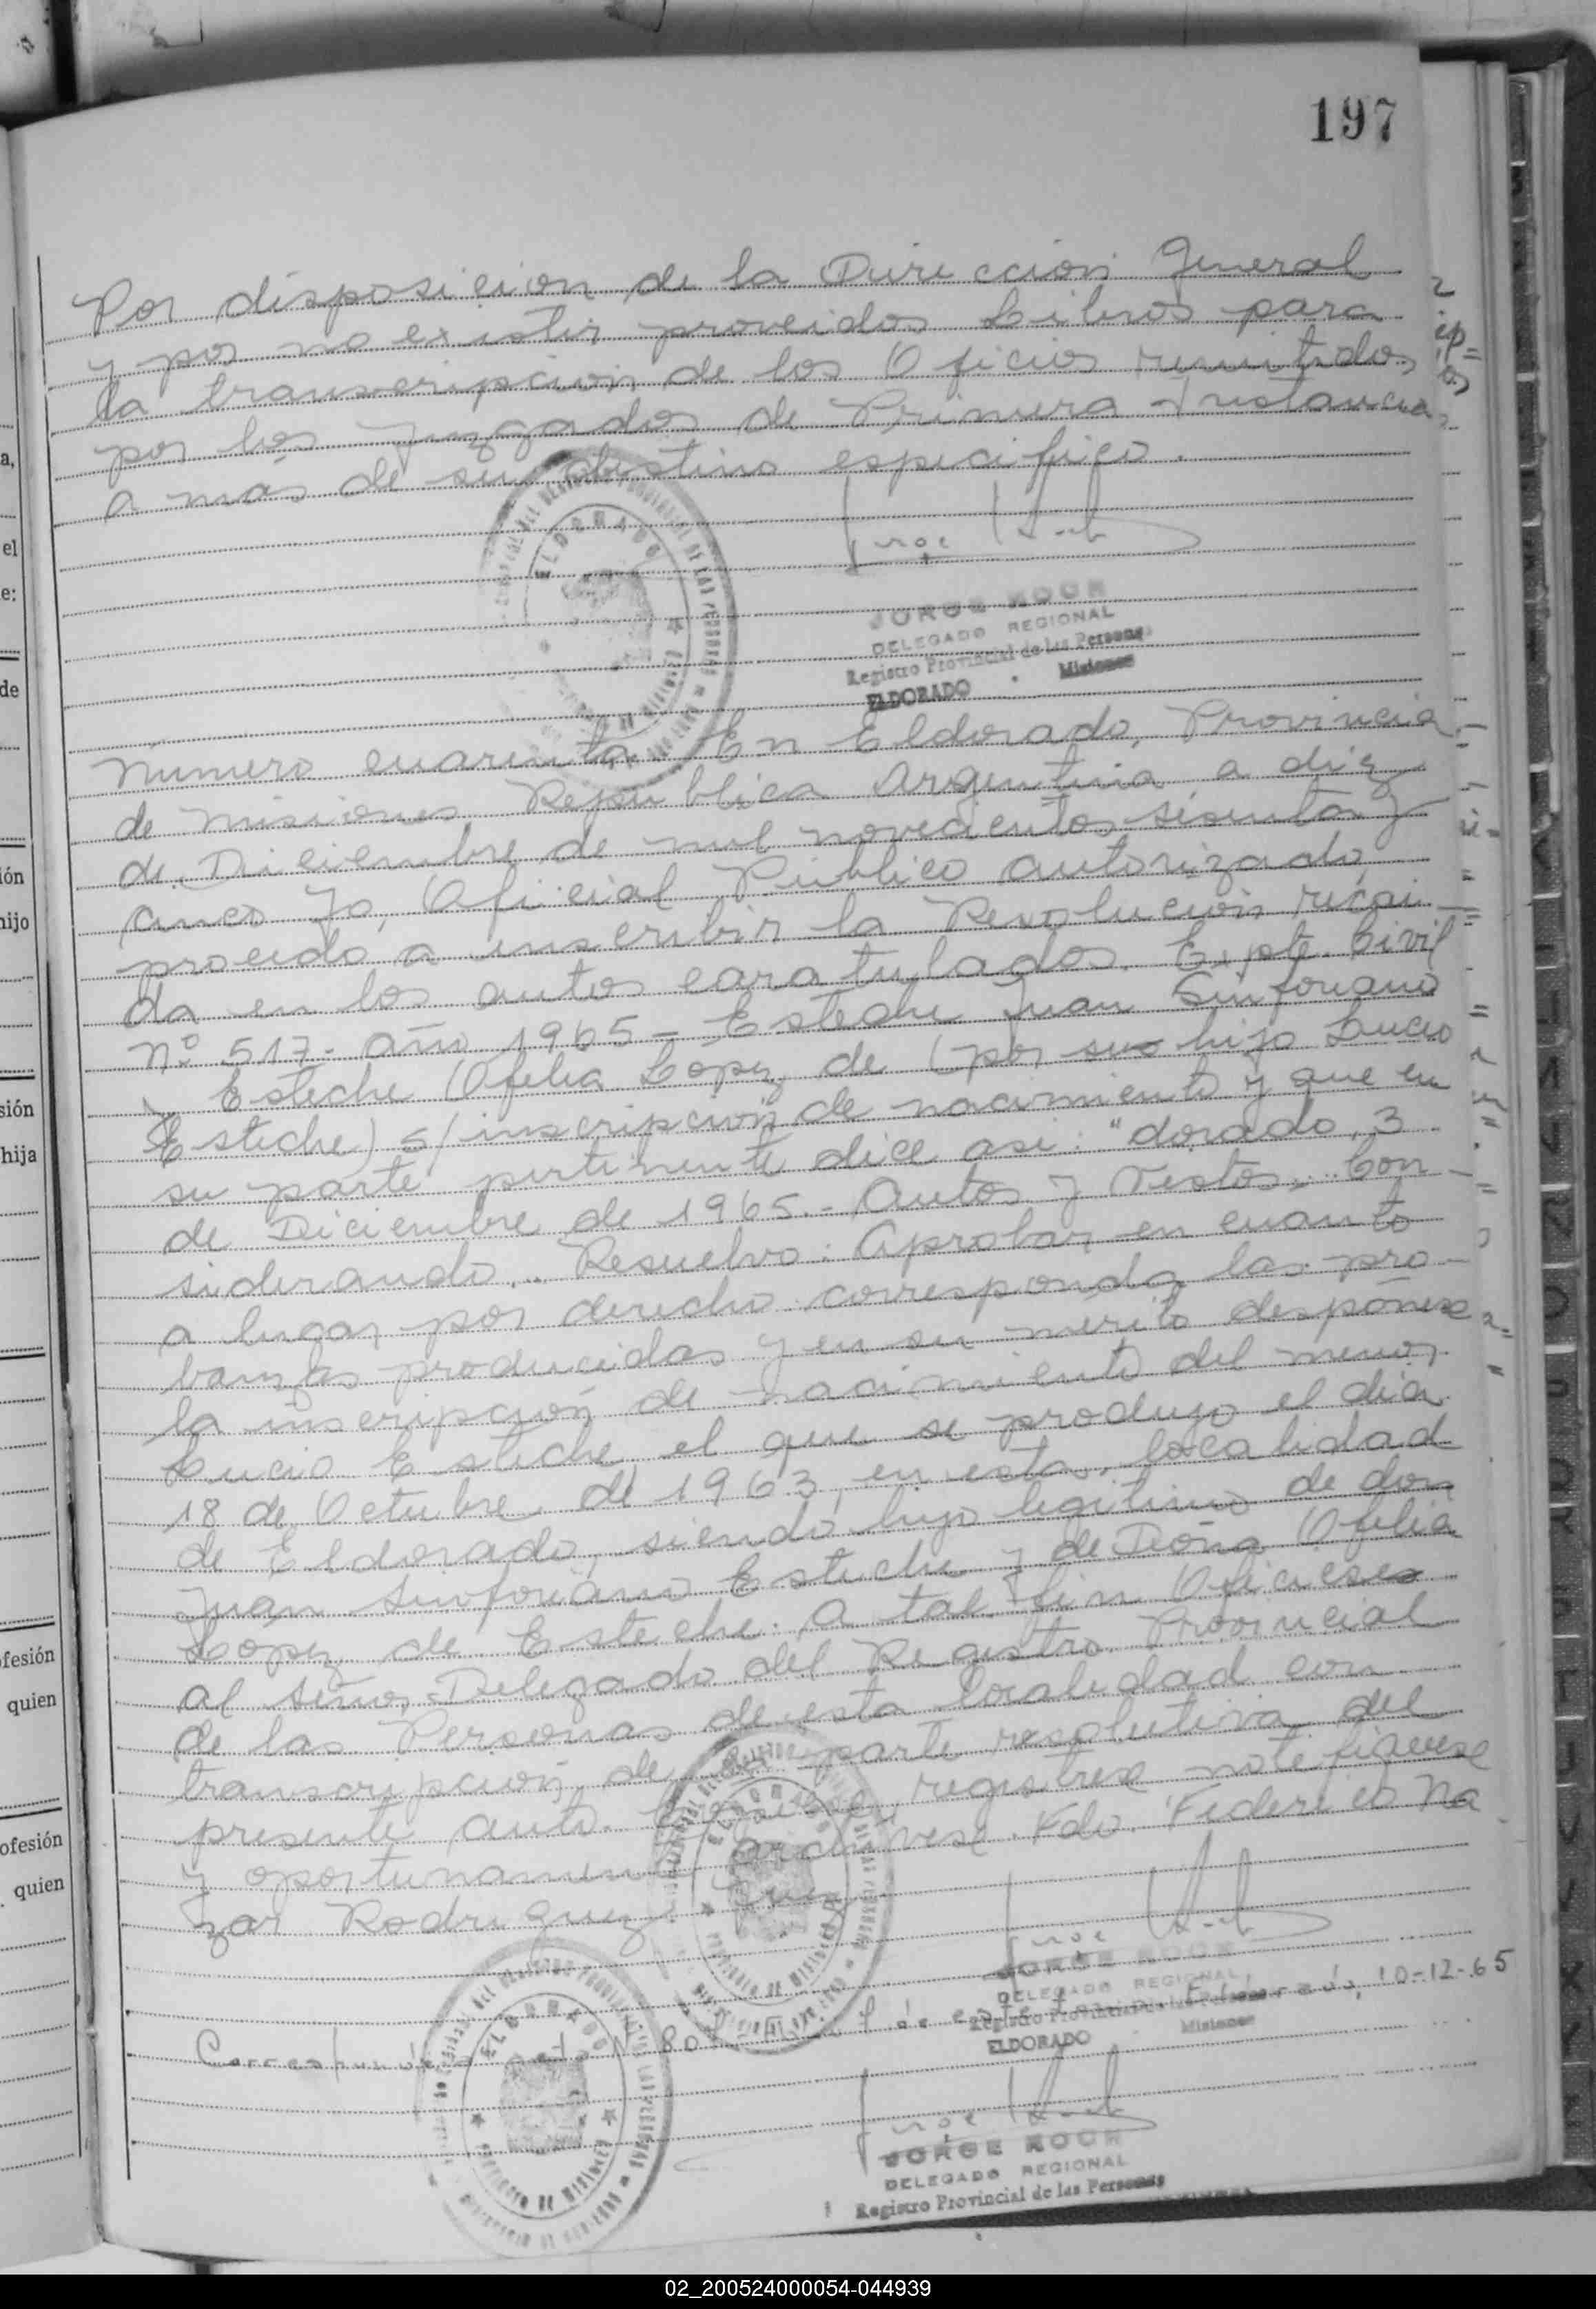 197
Por disposicion de la Direccion General
y por no existir proveidos Libros para
la transcripcion de los Oficios remitidos
por los Juzgados de Primera Instancia,
a más de su destino especifico.
JORGE KOCH
DELEGADO REGIONAL
Registro Provincial de las Personas
ELDORADO - Misiones
Número cuarenta En Eldorado, Provincia
de Misiones Republica Argentina a diez
de Diciembre de mil novecientos sesenta y
cinco Yo, Oficial Publico autorizado,
procedo a inscribir la Resolucion recai-
da en los autos caratulados. Expte. Civil
Nº 517- año 1965 - Esteche Juan Sinforiano
y Esteche Ofelia López de (por su hijo Lucio
Esteche) s/ inscripción de nacimiento y que en
su parte pertinente dice asi: "dorado, 3
de Diciembre de 1965.- Autos y Vistos... Con-
siderando... Resuelvo: Aprobar en cuanto
a lugar por derecho corresponda las pro-
banzas producidas y en su merito dispónese
la inscripción de nacimiento del menor
Lucio Esteche el que se produjo el día
18 de Octubre de 1963, en esta localidad
de Eldorado, siendo hijo legitimo de don
Juan Sinforiano Esteche y de Doña Ofelia
López de Esteche. A tal fin Oficiese
al señor Delegado del Registro Provincial
de las Personas de esta localidad con
transcripción de la parte resolutiva del
presente auto. Cópiese, registrese notifiquese
y oportunamente archivese. Fdo. Federico Na
zar Rodriguez. Juez
JORGE KOCH
DELEGADO REGIONAL
Registro Provincial de las Personas
ELDORADO Misiones
Corresponde a acta Nº 80 de este Eldorado, 10-12-65
JORGE KOCH
DELEGADO REGIONAL
Registro Provincial de las Personas
a,
el
e:
de
ión
hijo
sión
hija
ofesión
quien
ofesión
quien
02_200524000054-044939